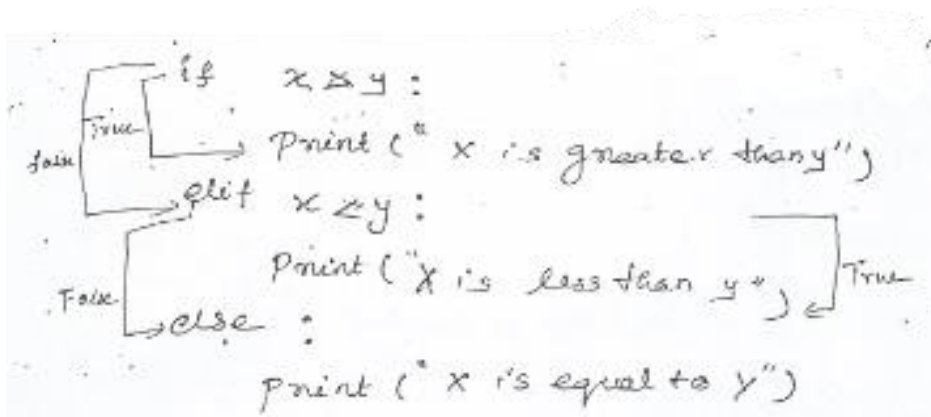 if x > y :
True
false
Print (" x is greater than y")
elif x < y :
Print ("x is less than y")
True
False
else :
print (" x is equal to y")